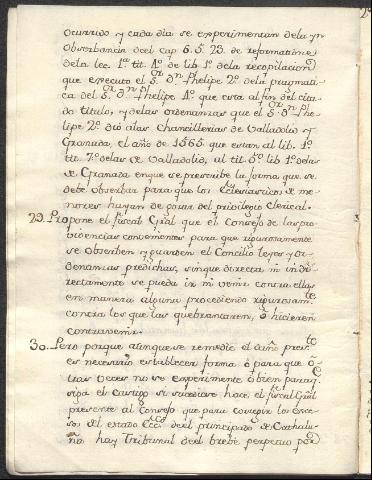 ocurrido, y cada dia se experimentan de la yn
observancia del cap. 6. S. 23. de reformatione
de la lee. 1ª tit. 4º de lib. 1º de la recopilacion
que executo el S.or D.n Phelipe 2º de la pragmati-
ca del S.or D.n Phelipe 4º que esta al fin del cita-
do titulo, y de las ordenanzas que el S.or D.n Phe-
lipe 2º dió a las Chancillerias de Valladolid y
Granada, el año de 1565 que estan al lib. 1º
tit. 7º de las de Valladolid, al tit. 5º lib 1º de las
de Granada en que se prescribe la forma que se
debe observar para que los Eclesiasticos de me-
nores hayan de gozar del privilegio clerical.
29. Propone el fiscal Gral que el Consejo de las pro
videncias convenientes para que rigurosamente
se observen y guarden el Concilio leyes y or-
denanzas predichas, sin que directa ni indi-
rectamente se pueda ir ni venir contra ellas
en manera alguna procediendo rigurosam.te
contra los que las quebrantaren, ó hicieren
contravenir.
30. Pero porque aunque se remedie el daño pres.te
es necesario establecer forma ó para que ó-
tras veces no se experimente ó bien para q.e
siga el castigo si sucediese hace el fiscal Gral
presente al Consejo que para corregir los exce-
sos del estado Ecc.co del principado de Cathalu-
ña hay Tribunal del breve perpetuo por